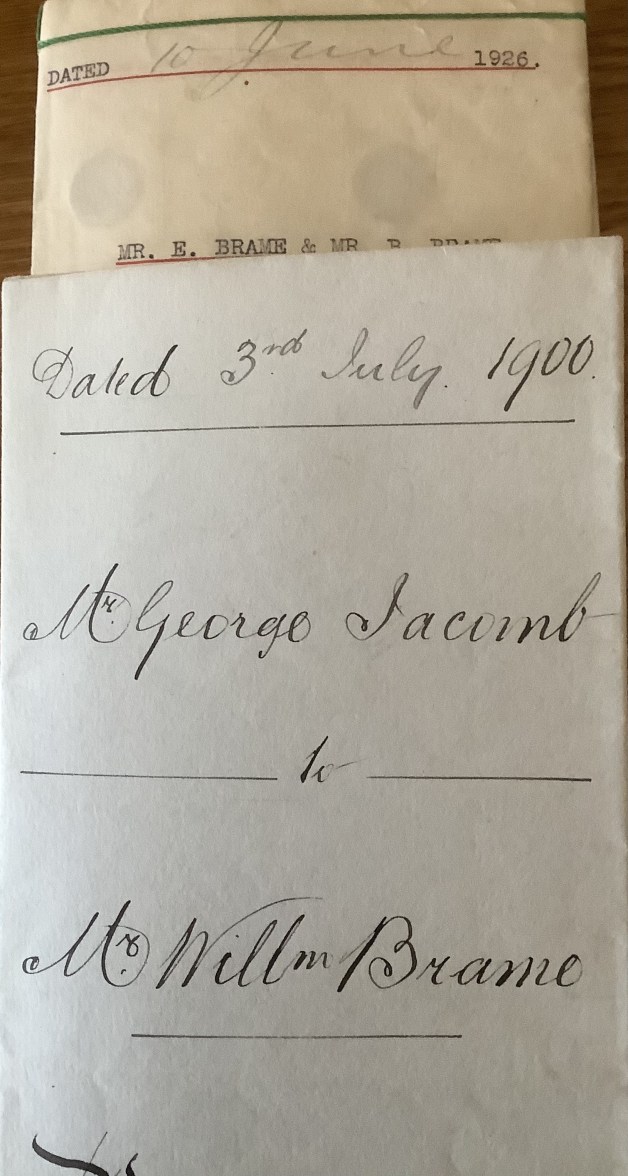 DATED 10 June 1926.
MR. E. BRAME & MR. B. BRAME
Dated 3rd July. 1900.
Mr. George Jacomb
to
Mr. Willm Brame